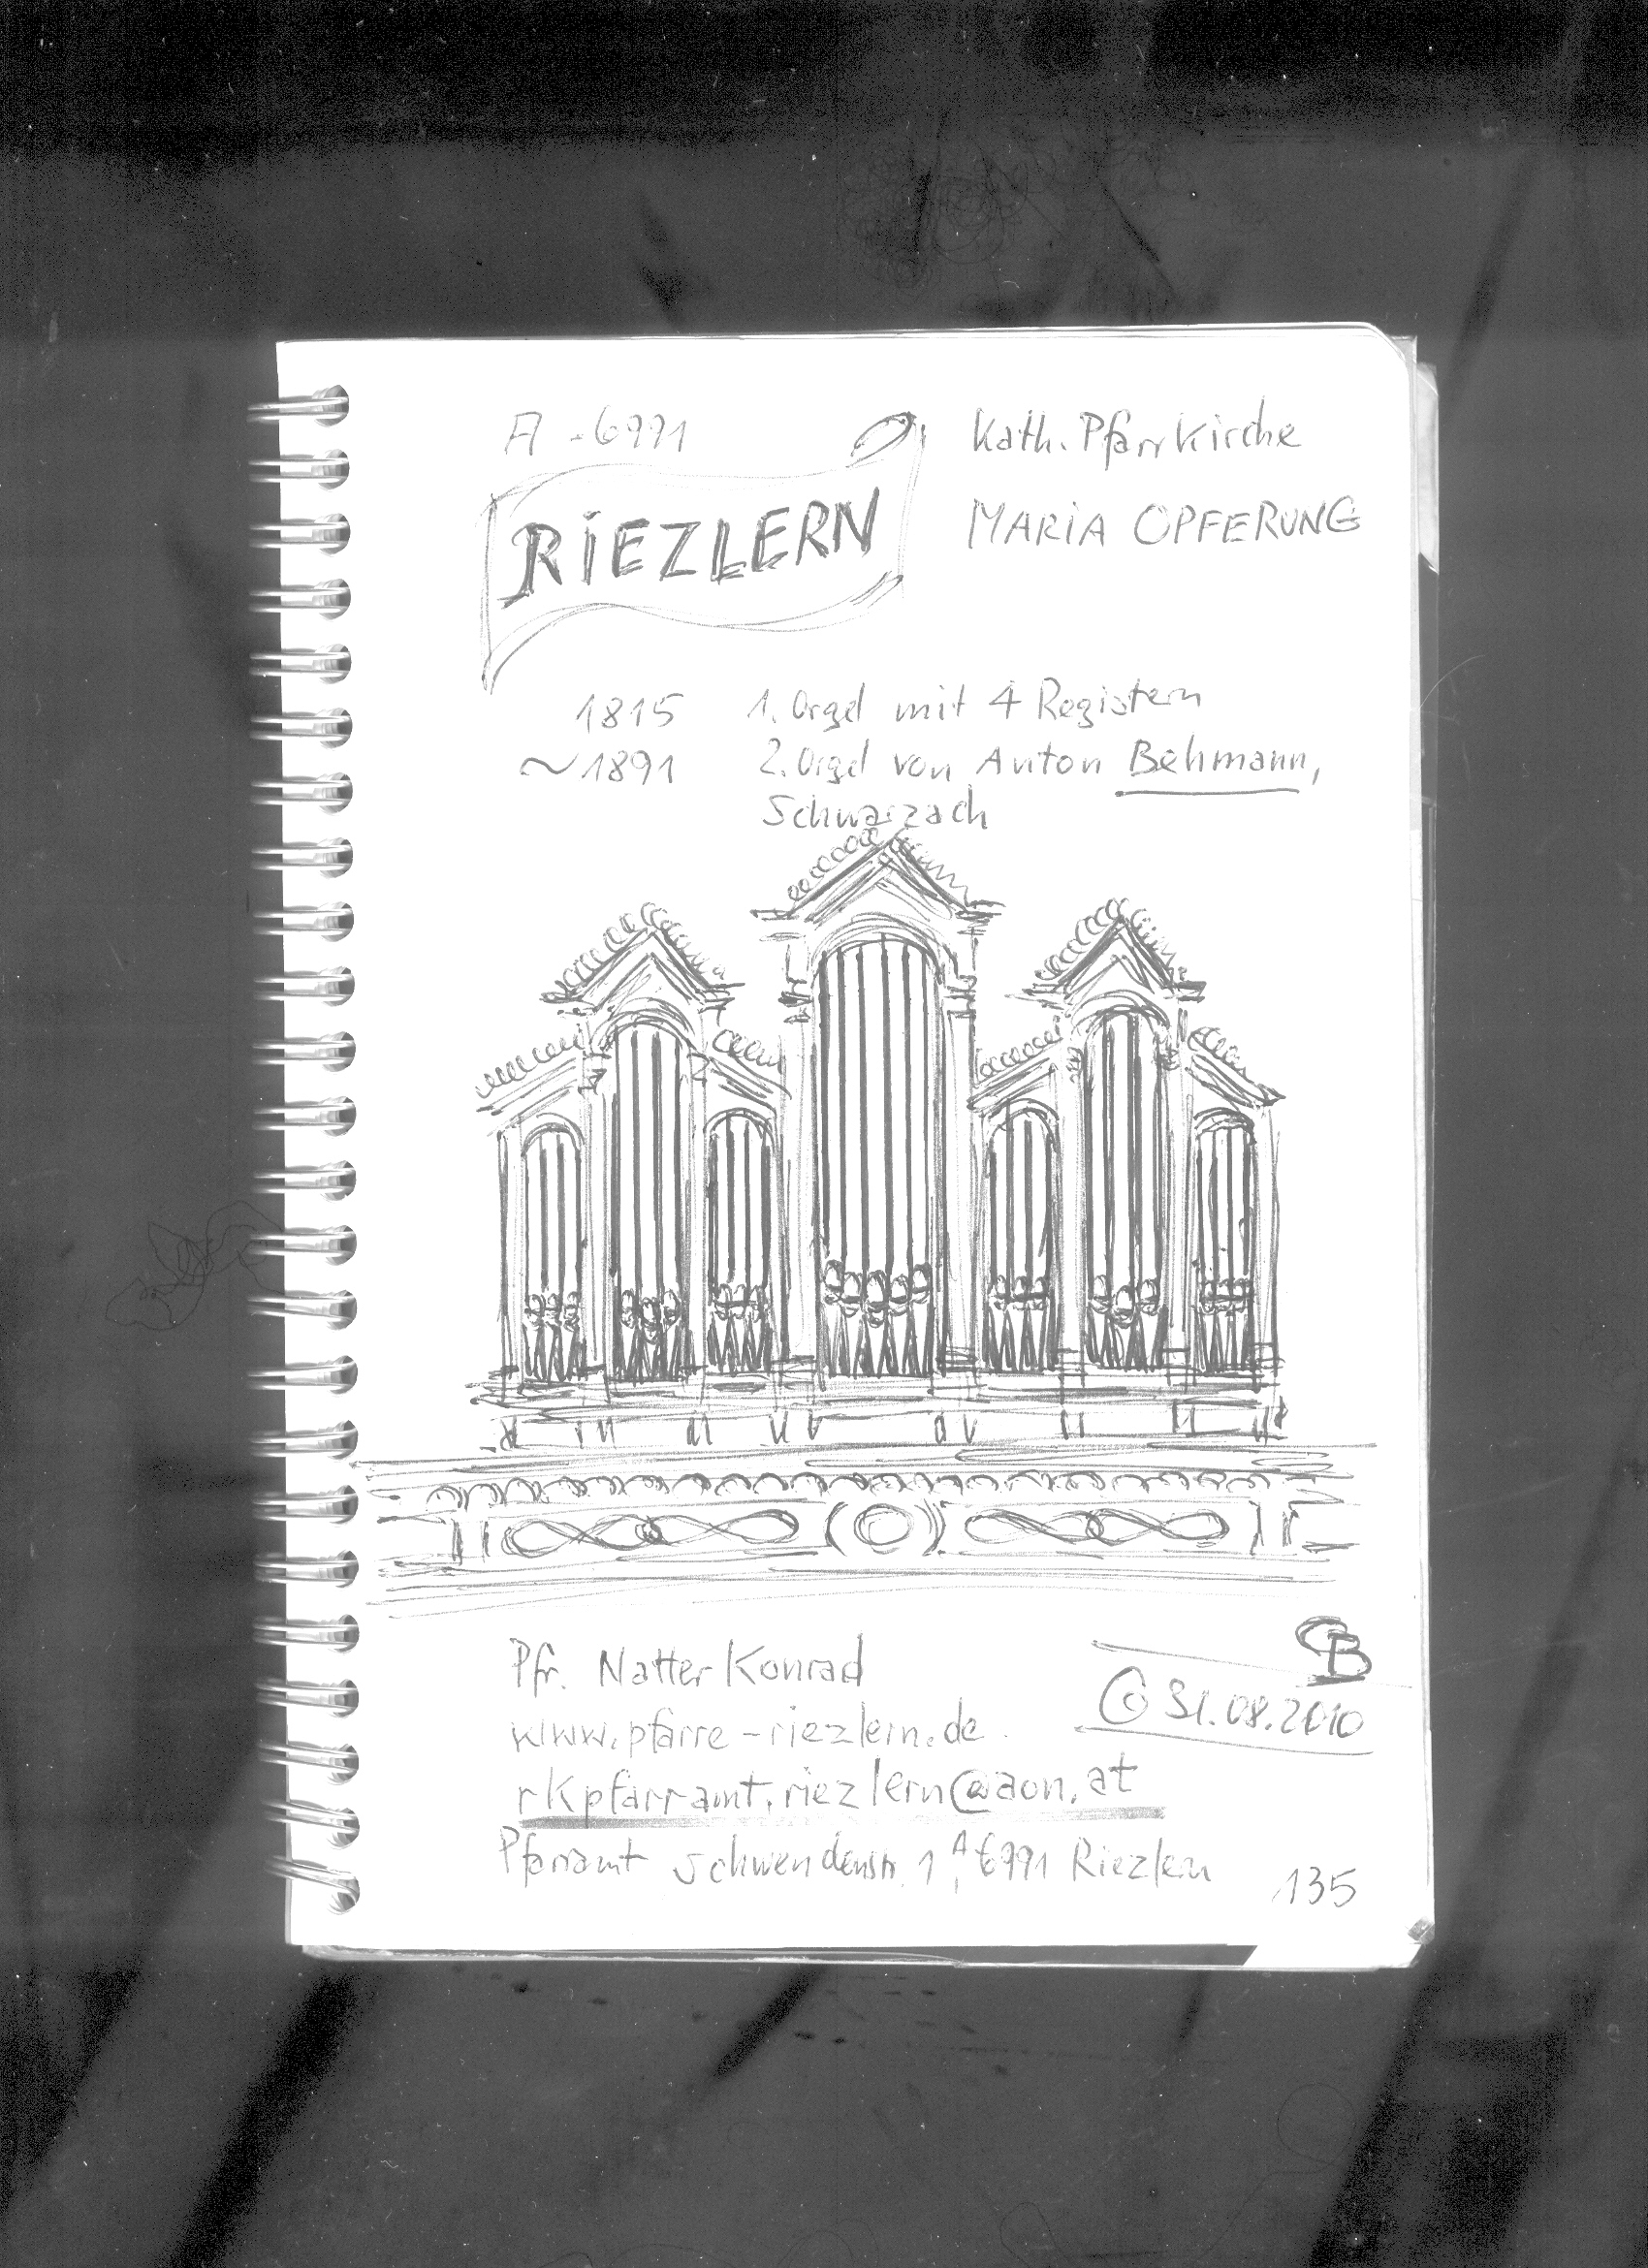 A-6991
Kath. Pfarrkirche
RIEZLERN
MARIA OPFERUNG
1815 1. Orgel mit 4 Registern
~1891 2. Orgel von Anton Behmann,
Schwarzach
Pfr. Natter Konrad
www.pfarre-riezlern.de
rkpfarramt.riezlern@aon.at
Pfarramt Schwendenstr. 1, A-6991 Riezlern
CB
© 31.08.2010
135